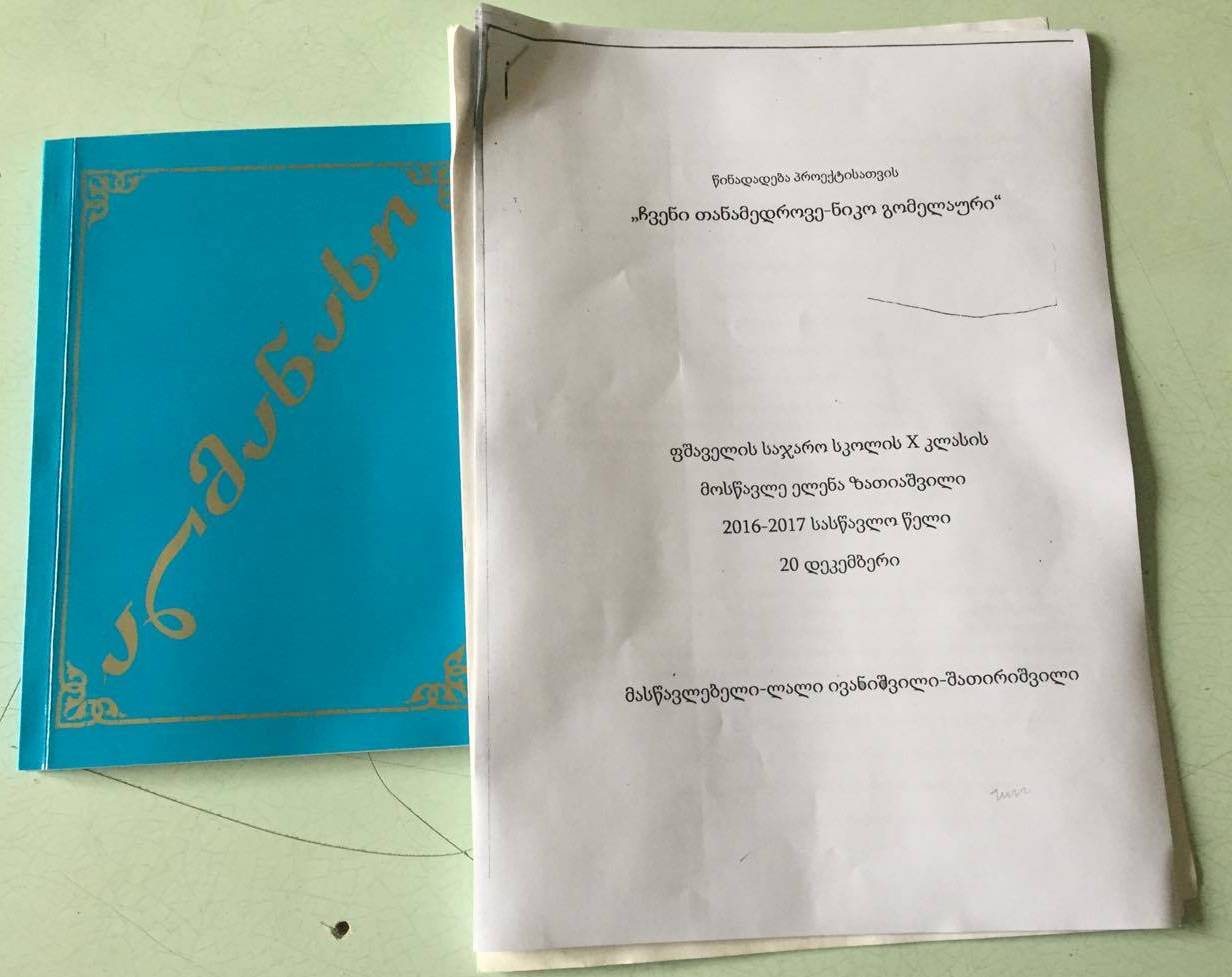 ალმანახი
წინადადება პროექტისათვის
„ჩვენი თანამედროვე-ნიკო გომელაური“
ფშაველის საჯარო სკოლის X კლასის
მოსწავლე ელენა ზათიაშვილი
2016-2017 სასწავლო წელი
20 დეკემბერი
მასწავლებელი-ლალი ივანიშვილი-შათირიშვილი